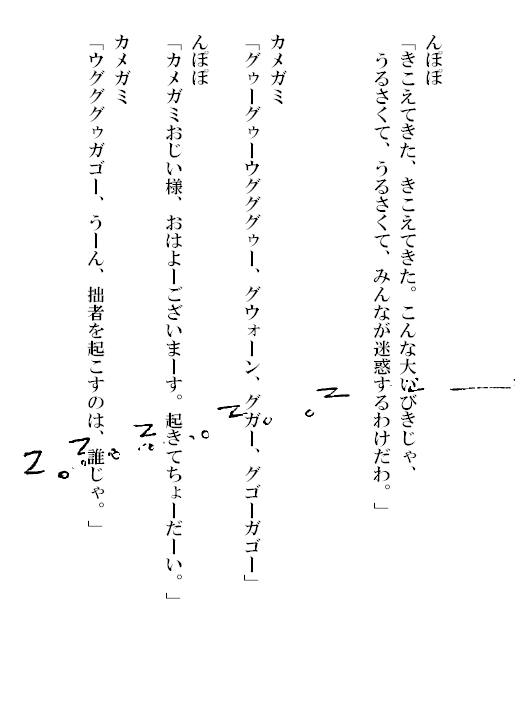 んぽぽ
「きこえてきた、きこえてきた。こんな大いびきじゃ、
うるさくて、うるさくて、みんなが迷惑するわけだわ。」
カメガミ
「グゥーグゥーウグググゥー、グウォーン、グガー、グゴーガゴー」
んぽぽ
「カメガミおじい様、おはよーございまーす。起きてちょーだーい。」
カメガミ
「ウグググゥガゴー、うーん、拙者を起こすのは、誰じゃ。」
z
z
z
z
z
z